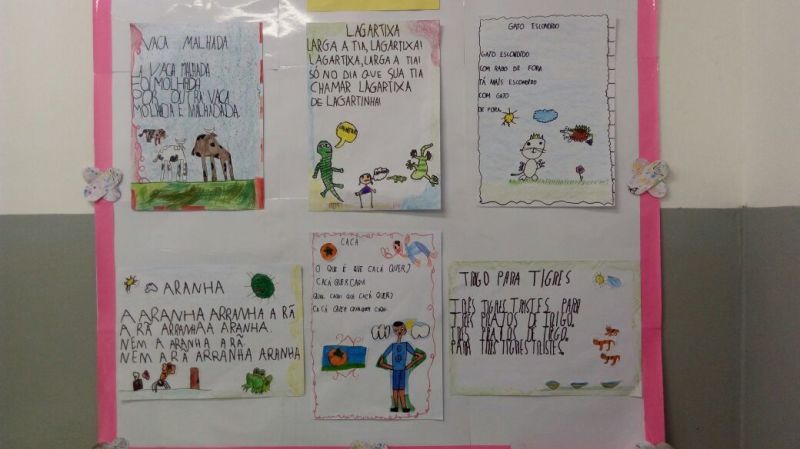 VACA MALHADA
A VACA MALHADA
FOI MOLHADA
POR OUTRA VACA
MOLHADA E MALHADADA.
LAGARTIXA
LARGA A TIA, LAGARTIXA!
LAGARTIXA, LARGA A TIA!
SÓ NO DIA QUE SUA TIA
CHAMAR LAGARTIXA
DE LAGARTINHA!
GATO ESCONDIDO
GATO ESCONDIDO
COM RABO DE FORA
TÁ MAIS ESCONDIDO
COM GATO
DE FORA.
ARANHA
A ARANHA ARRANHA A RÃ
A RÃ ARRANHA A ARANHA.
NEM A ARANHA A RÃ.
NEM A RÃ ARRANHA ARANHA
CACÁ
O QUE É QUE CACÁ QUER?
CACÁ QUER CAQUI
QUAL CAQUI QUE CACÁ QUER?
CACÁ QUER QUALQUER CAQUI
TRIGO PARA TIGRES
TRÊS TIGRES TRISTES PARA
TRÊS PRATOS DE TRIGO.
TRÊS PRATOS DE TRIGO.
PARA TRÊS TIGRES TRISTES.